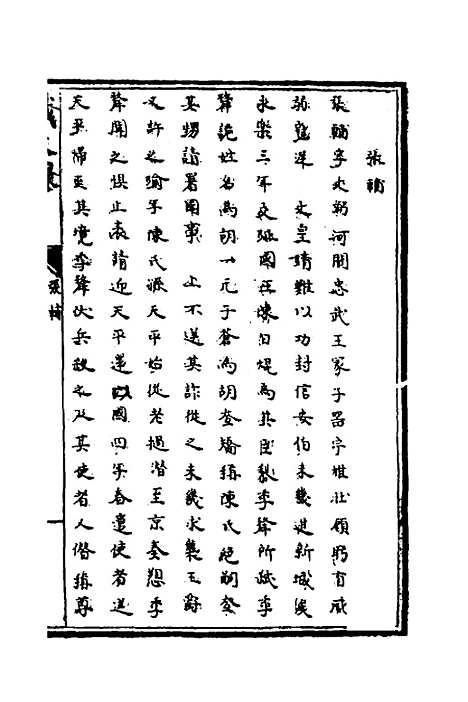 張輔
張輔字文弼河間忠武王冢子器宇雄壯願弼有戒
弥寇深 文皇靖難以功封信安伯未幾進新城侯
永樂三年安南國王陳日焜為其臣黎季犛所弒季
犛詭姓名為胡一元子蒼為胡𡗨矯稱陳氏絕嗣𡗨
其甥請署國事 上不逆其詐從之未幾求襲王爵
又許之踰年陳氏孫天平始從老撾潛至京奏愬季
犛聞之懼上表請迎天平還以國四年春遣使者送
天平歸至其境季犛伏兵殺之及其使者人僭稱尊
張輔
一